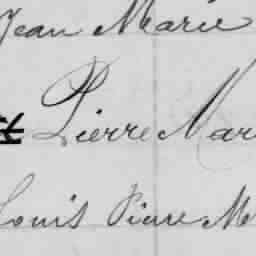 Jean Marie
Pierre Mar
Louis Pierre M